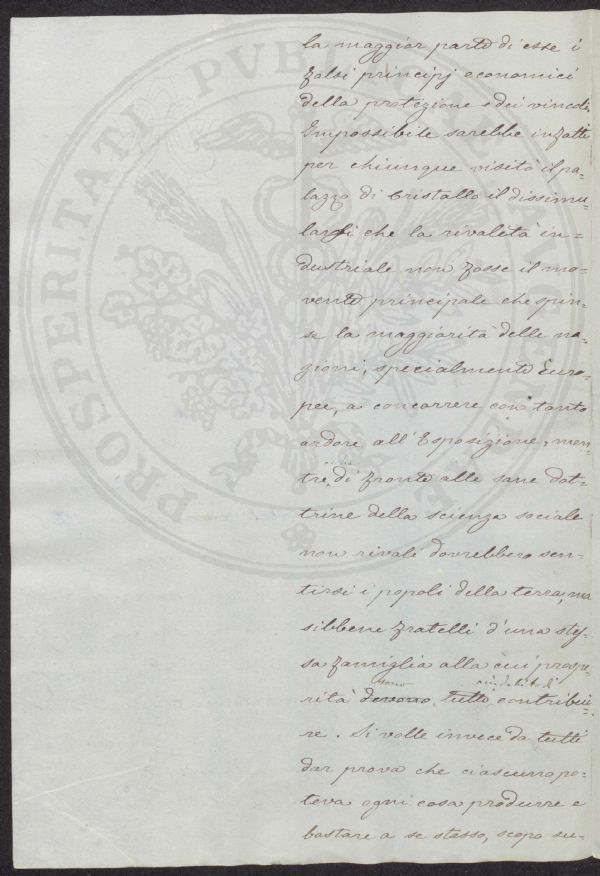 PROSPERITATE PVBLICAE AVGENDAE
la maggior parte di esse i
falsi principj economici
della protezione e dei vincoli.
Impossibile sarebbe infatti
per chiunque visitò il pa-
lazzo di Cristallo il dissimu-
larsi che la rivalità in-
dustriale non fosse il mo-
vente principale che spin-
se la maggiorità delle na-
zioni, specialmente Euro-
pee, a concorrere con tanto
ardore all'Esposizione, men-
tre, di fronte alle sane dot-
trine della scienza sociale
non rivali dovrebbero sen-
tirsi i popoli della terra, ma
sibbene fratelli d'una stes-
sa famiglia alla cui prospe-
sono in debito di
rità devono tutti contribui-
re. Si volle invece da tutti
dar prova che ciascuno po-
teva ogni cosa produrre e
bastare a se stesso, scopo su-